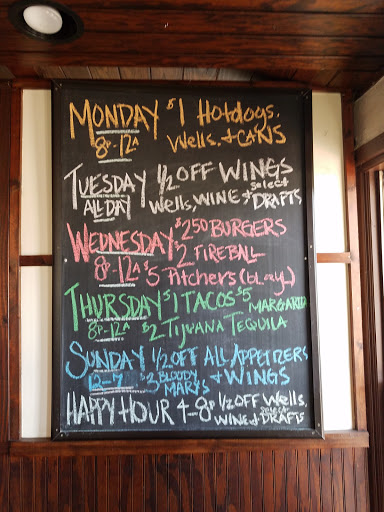 MONDAY $1 Hotdogs,
8P-12A Wells, + CANS
TUESDAY 1/2 OFF WINGS
ALL DAY Wells, WINE + select DRAFTS
WEDNESDAY $250 BURGERS
$2 FIREBALL
8P-12A $5 Pitchers
THURSDAY $1 TACOS $5 MARGARITA
8P-12A $2 TIJUANA TEQUILA
SUNDAY 1/2 OFF ALL APPETIZERS
12-7 $2 BLOODY MARYS + WINGS
HAPPY HOUR 4-8P 1/2 OFF Wells,
WINE + select DRAFTS